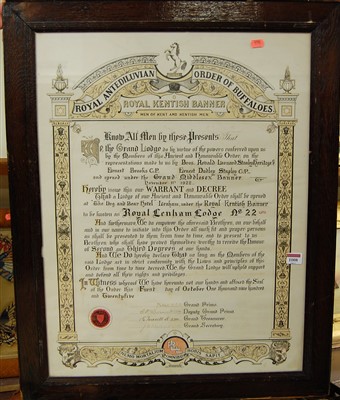 ROYAL ANTEDILUVIAN ORDER OF BUFFALOES.
ROYAL KENTISH BANNER
MEN OF KENT AND KENTISH MEN.
Know All Men by these Presents That
We the Grand Lodge by virtue of the powers conferred upon us
by the Members of this Ancient and Honourable Order, on the
representations made to us by Bros. Ronald Leonard
Ernest Brooks C.P. Ernest Dudley C.P.
and agreed under the Grand Middlesex Banner
November 1922
Hereby issue this our WARRANT and DECREE
That a Lodge of our Ancient and Honourable Order shall be opened
at The Dog and Bear Hotel Lenham, under the Royal Kentish Banner
to be known as Royal Lenham Lodge No 22
And furthermore We do empower the aforesaid Brethren, on our behalf
and in our name to initiate into this Order all such fit and proper persons
as shall be presented to them from time to time and to present to us
Brethren who shall have proved themselves worthy to receive the Honour
of Second and Third Degrees at our hands.
And We Do hereby Declare That so long as the Members of the
said Lodge act in strict conformity with the Laws and principles of this
Order from time to time decreed We the Grand Lodge will uphold support
and defend all their rights and privileges.
In Witness whereof We have hereunto set our hands and affixed the Seal
of the Order this First day of October One thousand nine hundred
and Twentyfive
Grand Primo
Deputy Grand Primo
Grand Treasurer
Grand Secretary
NEMO MORTALIUM OMNIBUS HORIS SAPIT